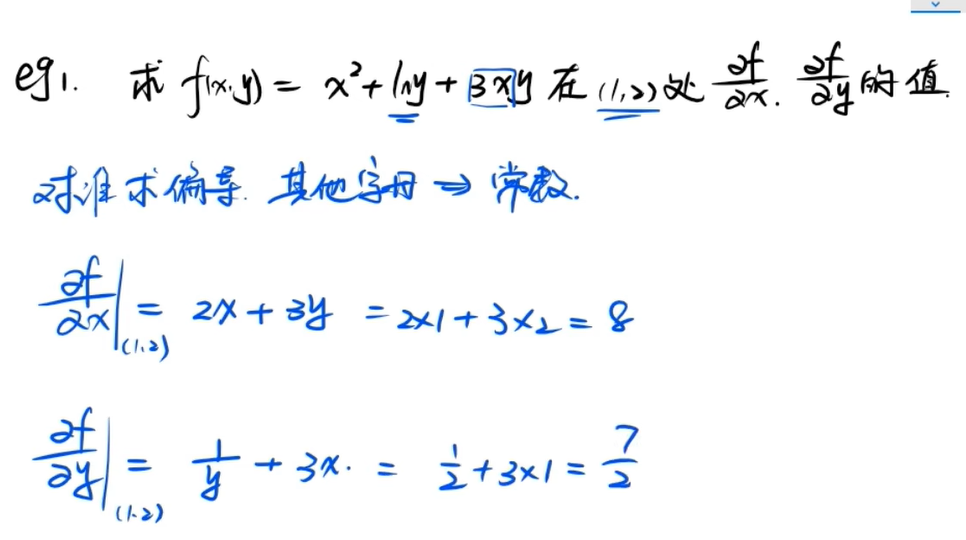 eg1. 求 f(x,y) = x² + lny + 3xy 在 (1,2) 处 ∂f/∂x. ∂f/∂y 的值.
对谁求偏导. 其他字母 ⇒ 常数.
∂f/∂x|(1,2) = 2x + 3y = 2×1 + 3×2 = 8
∂f/∂y|(1,2) = 1/y + 3x. = 1/2 + 3×1 = 7/2